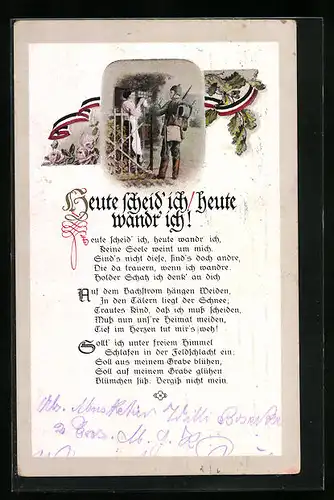 Heute scheid' ich/ heute
wandr' ich!
Heute scheid' ich, heute wandr' ich,
Keine Seele weint um mich.
Sind's nicht diese, sind's doch andre,
Die da trauern, wenn ich wandre.
Holder Schatz ich denk' an dich
Auf dem Bachstrom hängen Weiden,
In den Tälern liegt der Schnee;
Trautes Kind, daß ich muß scheiden,
Muß nun uns're Heimat meiden,
Tief im Herzen tut mir's weh!
Sollt' ich unter freiem Himmel
Schlafen in der Feldschlacht ein:
Soll aus meinem Grabe blühen,
Soll auf meinem Grabe glühen
Blümchen süß: Vergiß nicht mein.
Willi